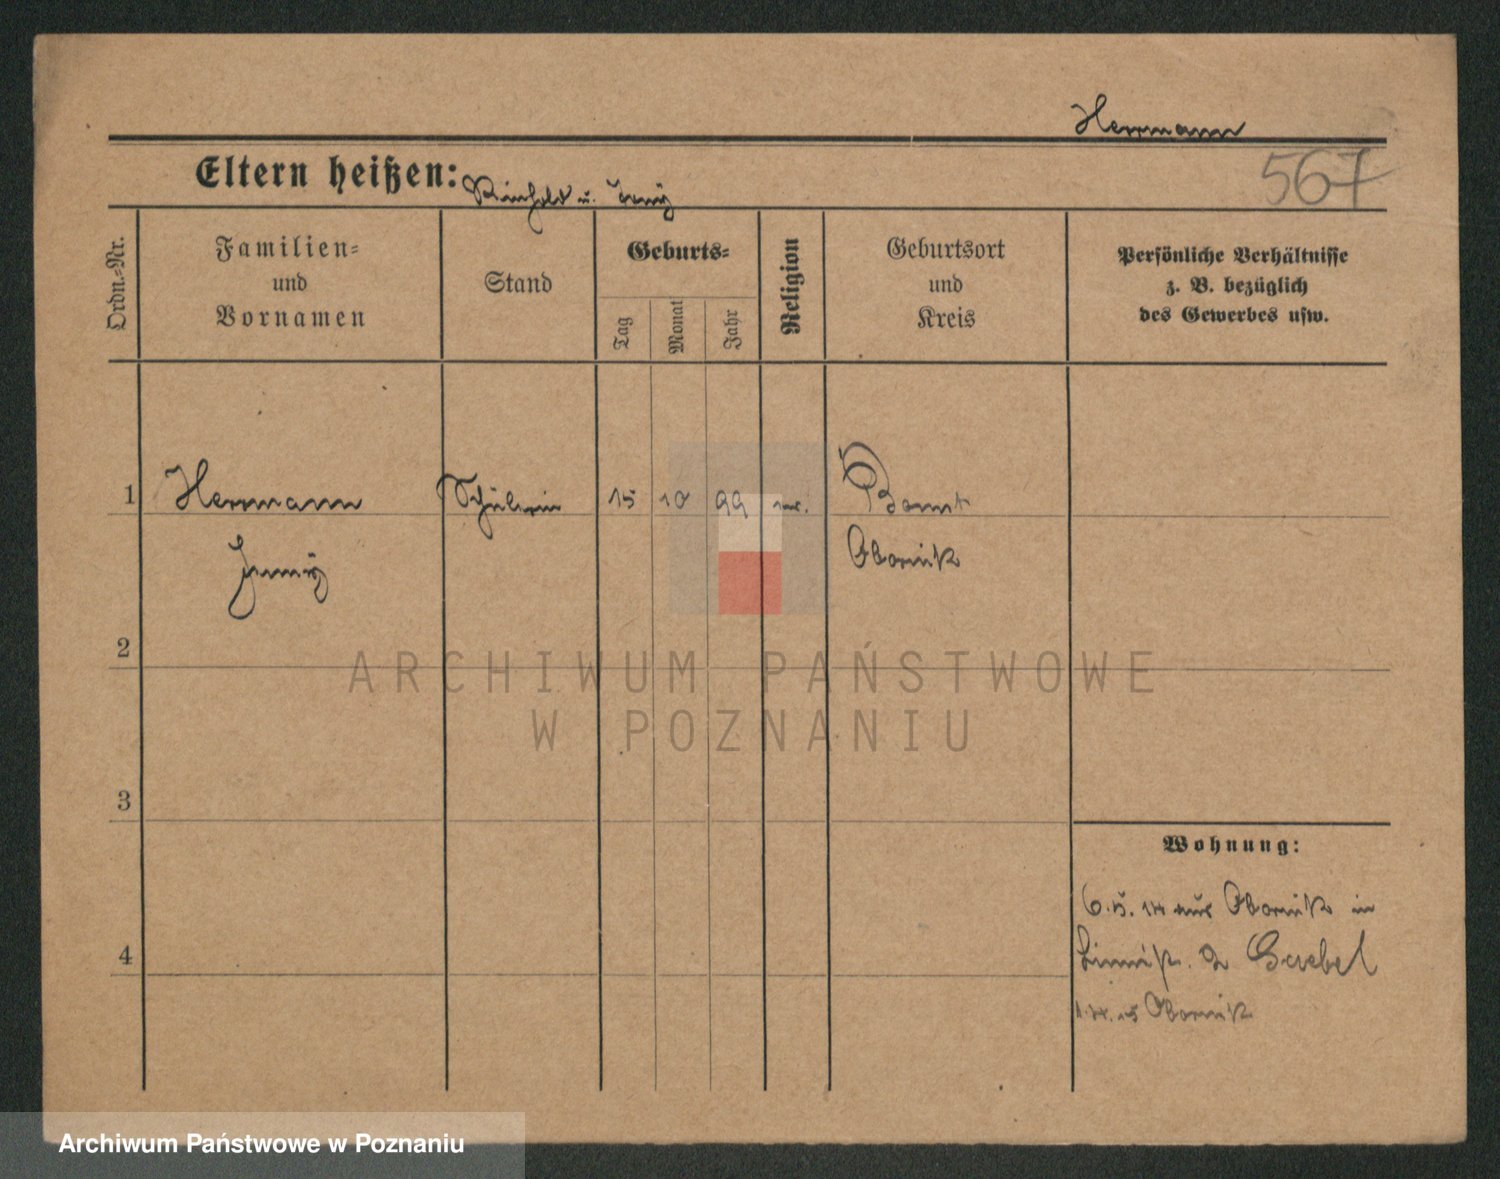 Herrmann
567
Eltern heißen: Reinhold u.
Ordn.-Nr.
Familien- und Vornamen
Stand
Geburts-
Tag
Monat
Jahr
Religion
Geburtsort und Kreis
Persönliche Verhältnisse z. B. bezüglich des Gewerbes usw.
1 Herrmann Schülerin 15 10 99
Jenny Obornik
2
3
4
Wohnung:
6.5.14 aus Obornik in
2 Goebel
Obornik
ARCHIWUM PAŃSTWOWE
W POZNANIU
Archiwum Państwowe w Poznaniu